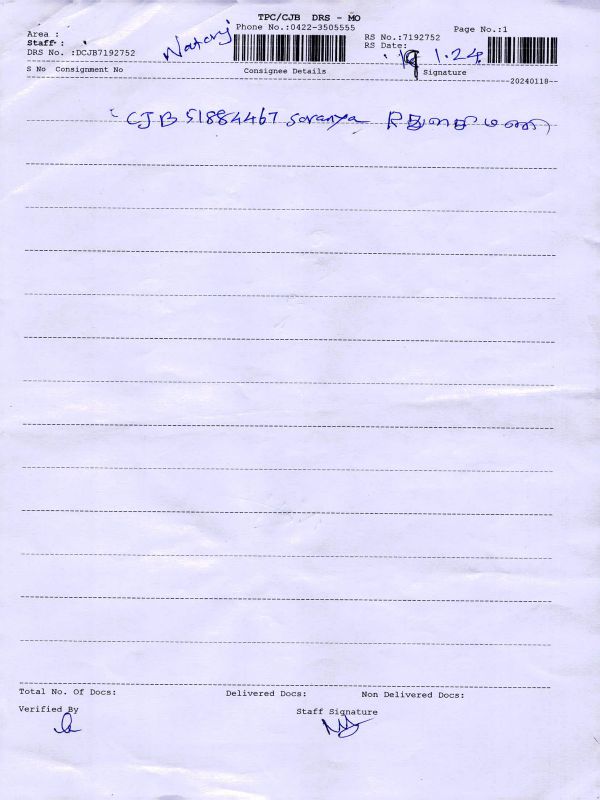 TPC/CJB DRS - MO
Phone No.:0422-3505555
Page No.:1
Area :
Staff : Nataraj
RS No.:7192752
DRS No. :DCJB7192752
RS Date: 19 1.24
S No Consignment No Consignee Details Signature
20240118
CJB 51884467 Saranya
Total No. Of Docs: Delivered Docs: Non Delivered Docs:
Verified By Staff Signature